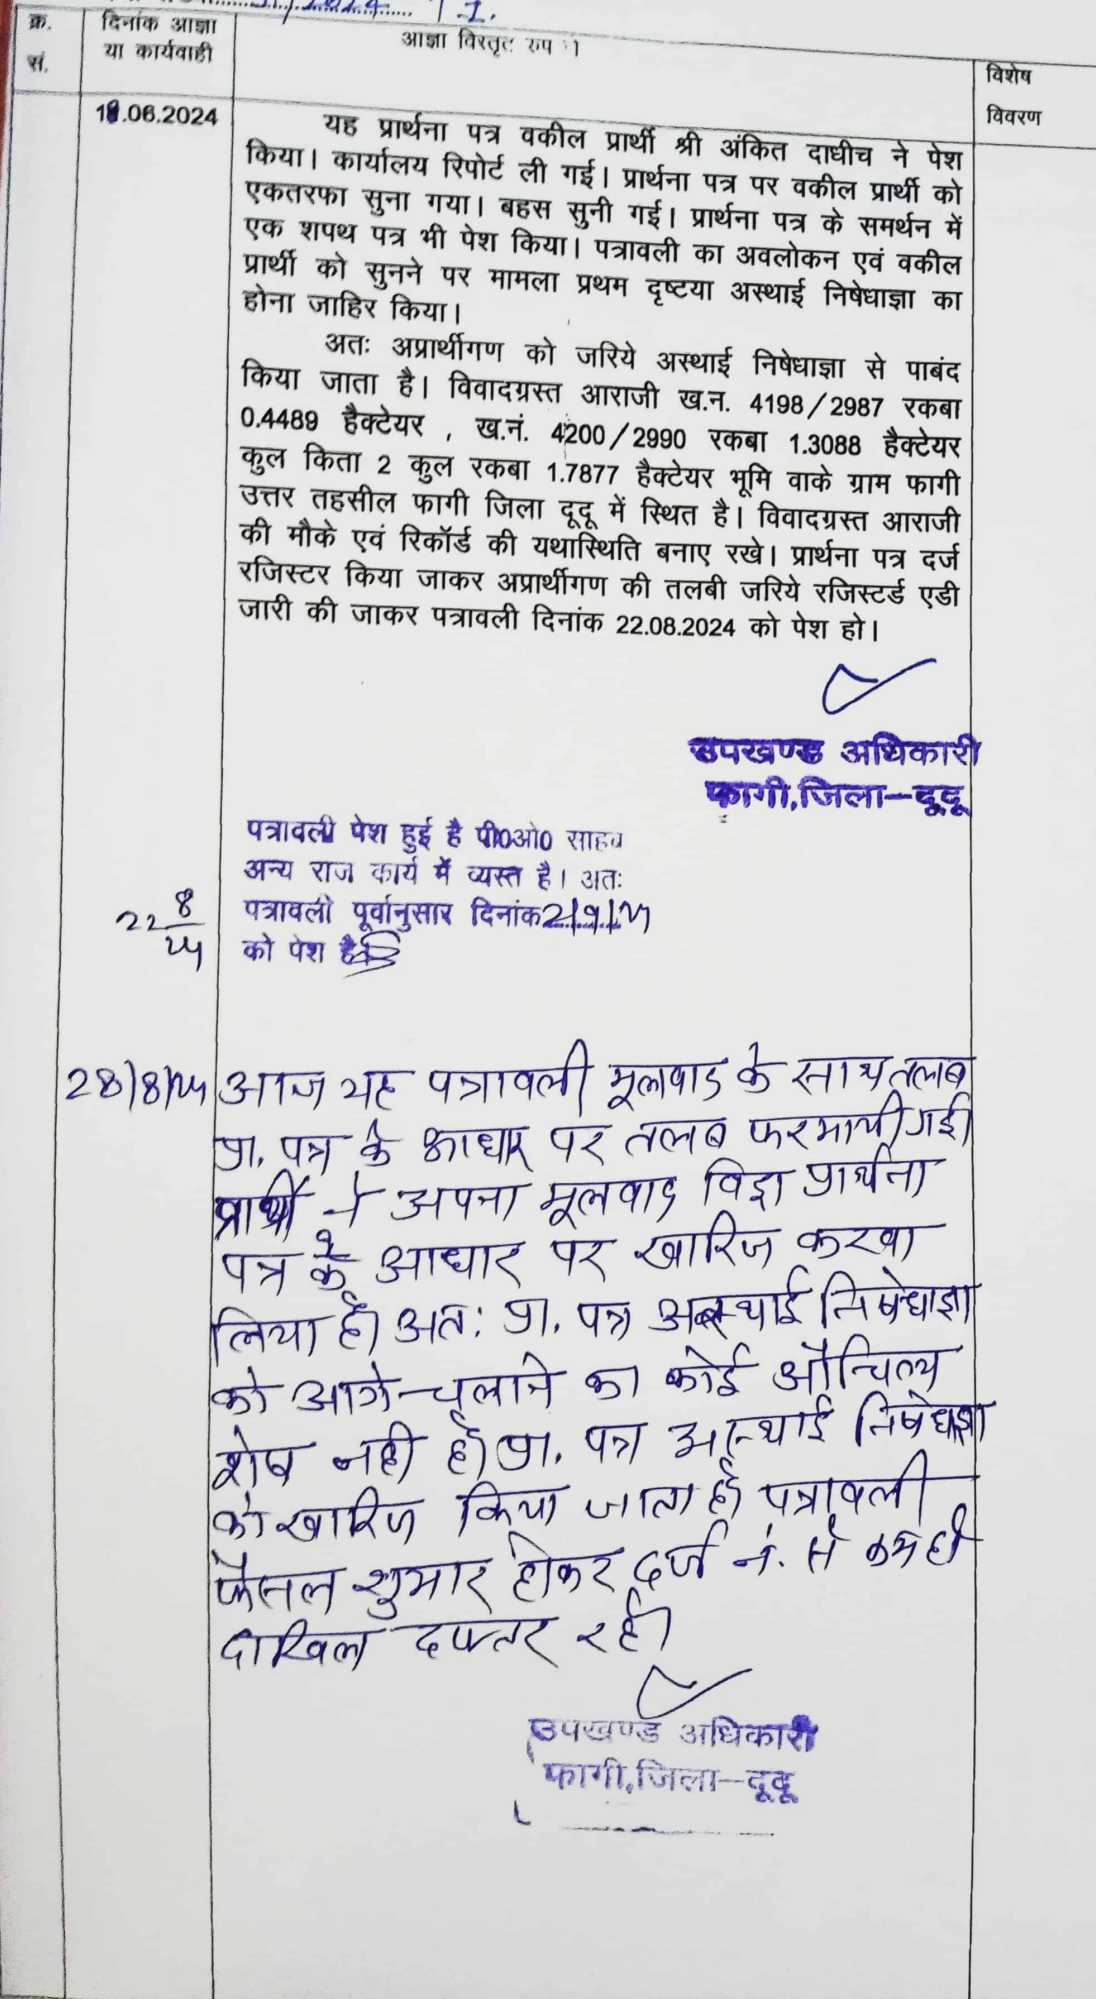 क्र. सं.
दिनांक आज्ञा या कार्यवाही
आज्ञा विस्तृत रुप
विशेष विवरण
18.06.2024
यह प्रार्थना पत्र वकील प्रार्थी श्री अंकित दाधीच ने पेश
किया। कार्यालय रिपोर्ट ली गई। प्रार्थना पत्र पर वकील प्रार्थी को
एकतरफा सुना गया। बहस सुनी गई। प्रार्थना पत्र के समर्थन में
एक शपथ पत्र भी पेश किया। पत्रावली का अवलोकन एवं वकील
प्रार्थी को सुनने पर मामला प्रथम दृष्टया अस्थाई निषेधाज्ञा का
होना जाहिर किया।
अतः अप्रार्थीगण को जरिये अस्थाई निषेधाज्ञा से पाबंद
किया जाता है। विवादग्रस्त आराजी ख.न. 4198/2987 रकबा
0.4489 हैक्टेयर , ख.नं. 4200/2990 रकबा 1.3088 हैक्टेयर
कुल किता 2 कुल रकबा 1.7877 हैक्टेयर भूमि वाके ग्राम फागी
उत्तर तहसील फागी जिला दूदू में स्थित है। विवादग्रस्त आराजी
की मौके एवं रिकॉर्ड की यथास्थिति बनाए रखे। प्रार्थना पत्र दर्ज
रजिस्टर किया जाकर अप्रार्थीगण की तलबी जरिये रजिस्टर्ड एडी
जारी की जाकर पत्रावली दिनांक 22.08.2024 को पेश हो।
उपखण्ड अधिकारी
फागी,जिला-दूदू
पत्रावली पेश हुई है पी0ओ0 साहब
अन्य राज कार्य में व्यस्त है। अतः
22 8/24 पत्रावली पूर्वानुसार दिनांक 2/9/24
को पेश
28/8/24 आज यह पत्रावली मूलवाद के साथ तलब
प्रा. पत्र के आधार पर तलब फरमायी गई।
प्रार्थी ने अपना मूलवाद विड्रा प्रार्थना
पत्र के आधार पर खारिज करवा
लिया है। अतः प्रा. पत्र अस्थाई निषेधाज्ञा
को आगे चलाने का कोई औचित्य
शेष नही है। प्रा. पत्र अस्थाई निषेधाज्ञा
को खारिज किया जाता है। पत्रावली
फैसल शुमार होकर दर्ज नं. से कम हो
दाखिल दफ्तर रहे।
उपखण्ड अधिकारी
फागी,जिला-दूदू